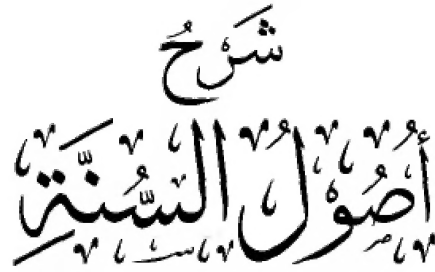 شَرْحُ
أُصُوْلُ السُّنَّةِ